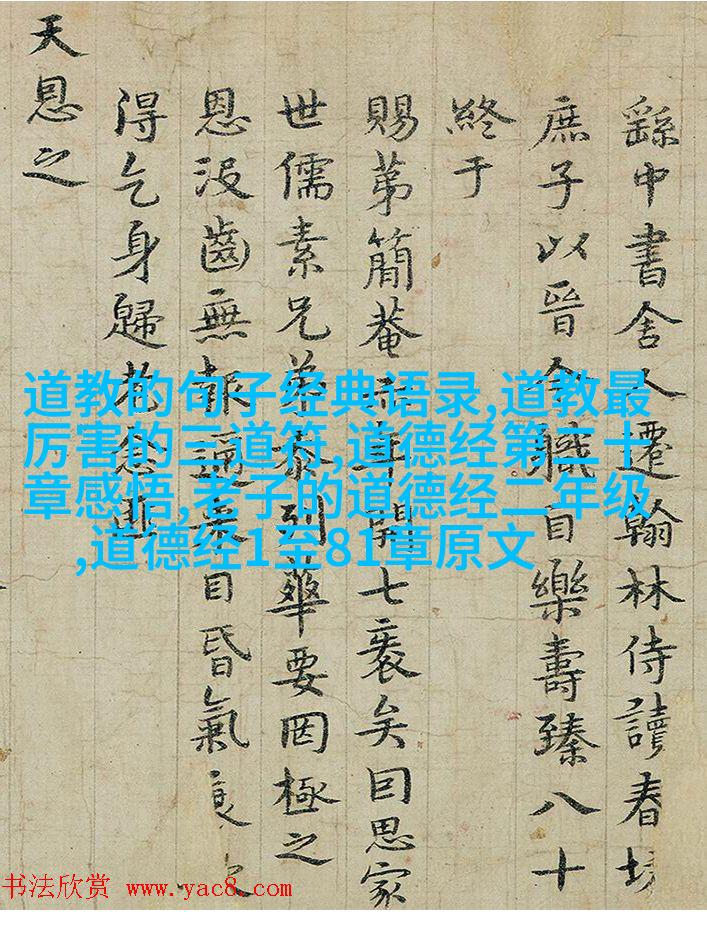 繇中書舍人遷翰林侍讀春坊
庶子以晉今職自樂壽臻八十
終于
賜第簡菴年開七袠矣回思家
世儒素兄弟泰列華要罔極之
恩沒齒無報目昏氣衰
得乞身歸老
天恩之
道教的句子经典语录,道教最
厉害的三道符,道德经第二十
章感悟,老子的道德经二年级
,道德经1至81章原文
书法欣赏 www.yac8.com